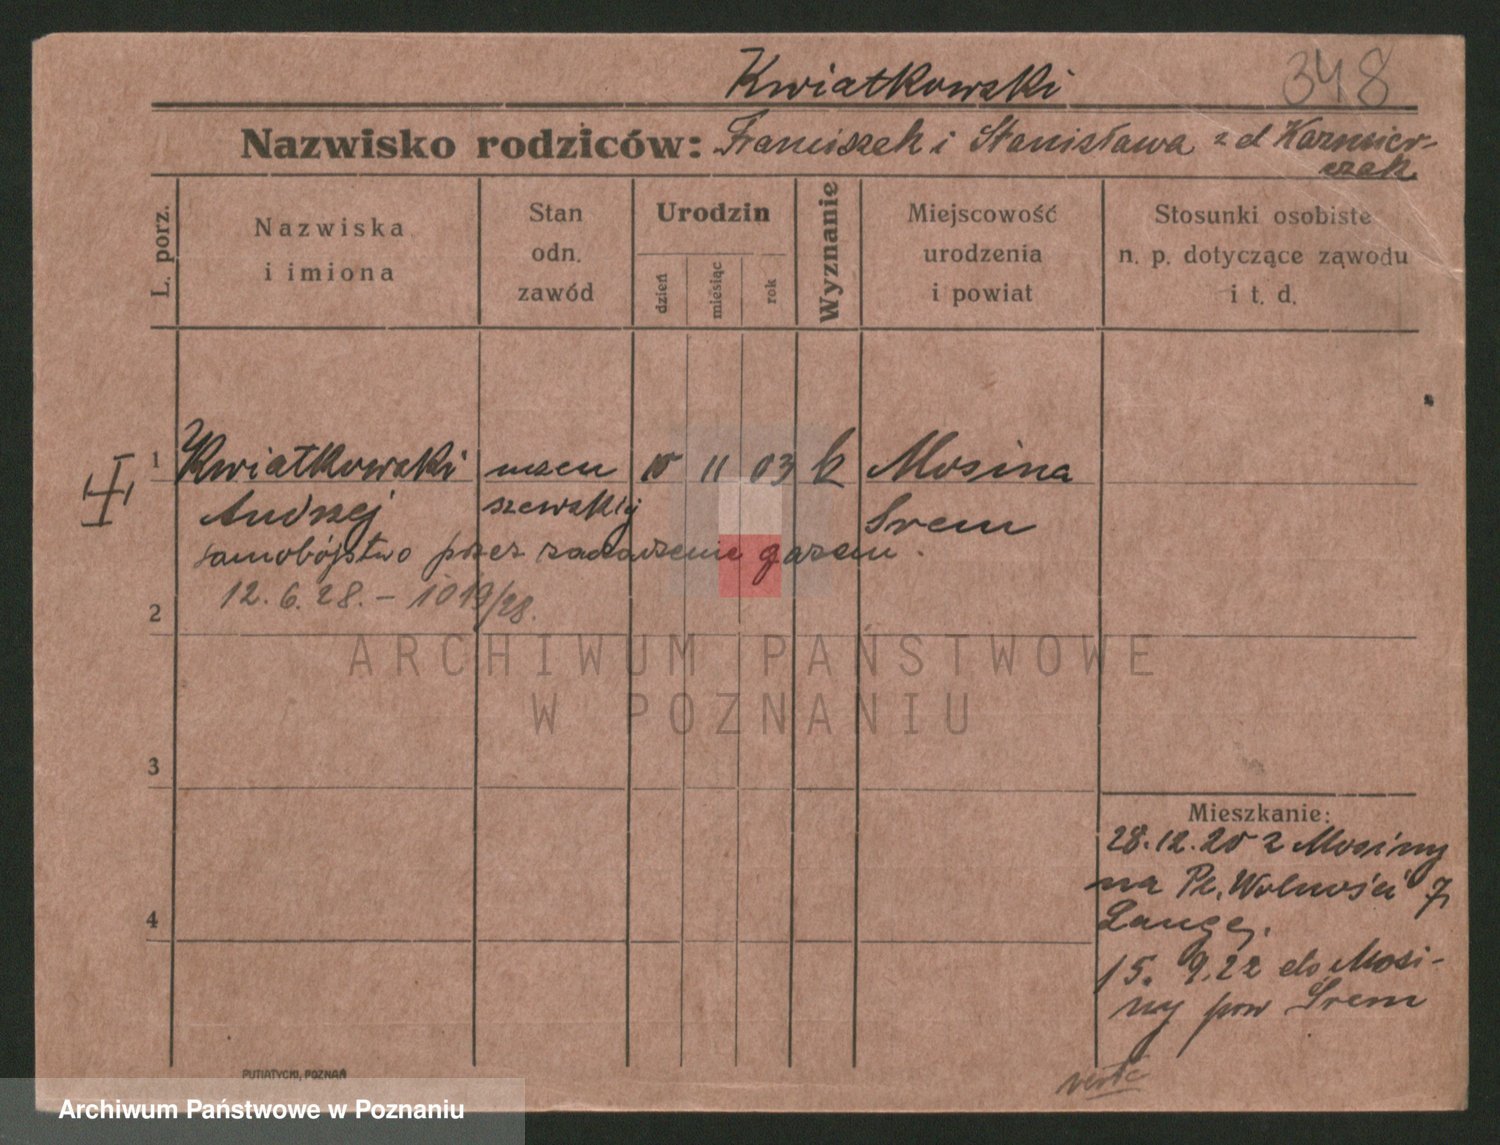 Kwiatkowski
348
Nazwisko rodziców: Franciszek i Stanisława z d Kazmier-
czak
L. porz.
Nazwiska
i imiona
Stan
odn.
zawód
Urodzin
dzień
miesiąc
rok
Wyznanie
Miejscowość
urodzenia
i powiat
Stosunki osobiste
n. p. dotyczące zawodu
i t. d.
1 Kwiatkowski uczeń 10 11 03 k Mosina
Andrzej szewski Śrem
samobójstwo przez zaczadzenie gazem.
12.6.28. – 1019/28.
2
ARCHIWUM PAŃSTWOWE
W POZNANIU
3
4
Mieszkanie:
28.12.20 z Mosiny
na Pl. Wolności 7
Lange.
15. 9.22 do Mosi-
ny pow Śrem
PUTIATYCKI, POZNAŃ
verte
Archiwum Państwowe w Poznaniu